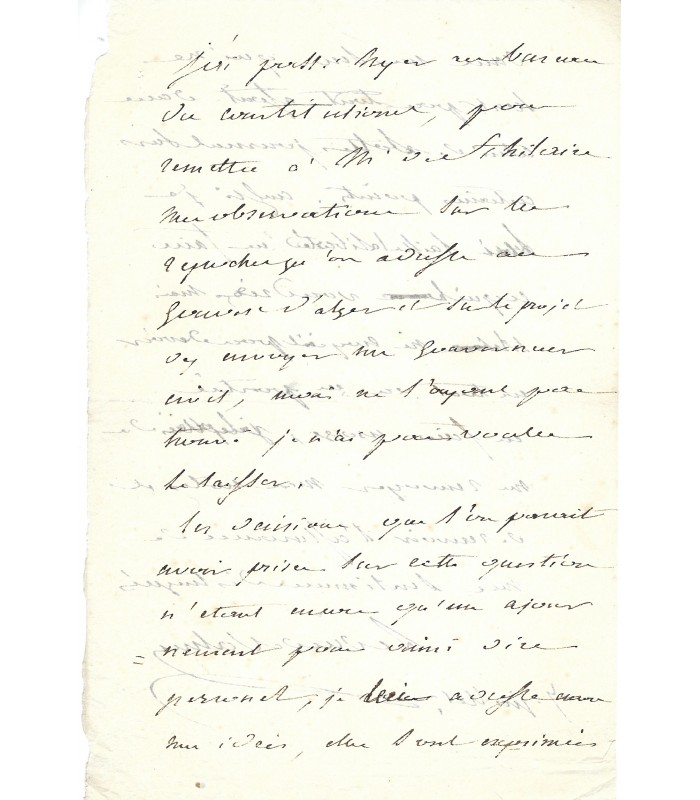 J'ai passé hyer au bureau
du constitutionel, pour
remettre à Mr de St hilaire
mes observations sur les
reproches qu'on adresse au
gouvert d'alger et sur le projet
d'y envoyer un gouverneur
civil, mais ne l'ayant pas
trouvé je n'ai pas voulu
les laisser.
les décisions que l'on pouvait
avoir prises sur cette question
n'étant encore qu'un ajour
= nement pour ainsi dire
personel, je adresse encore
mes idées, elles sont exprimées